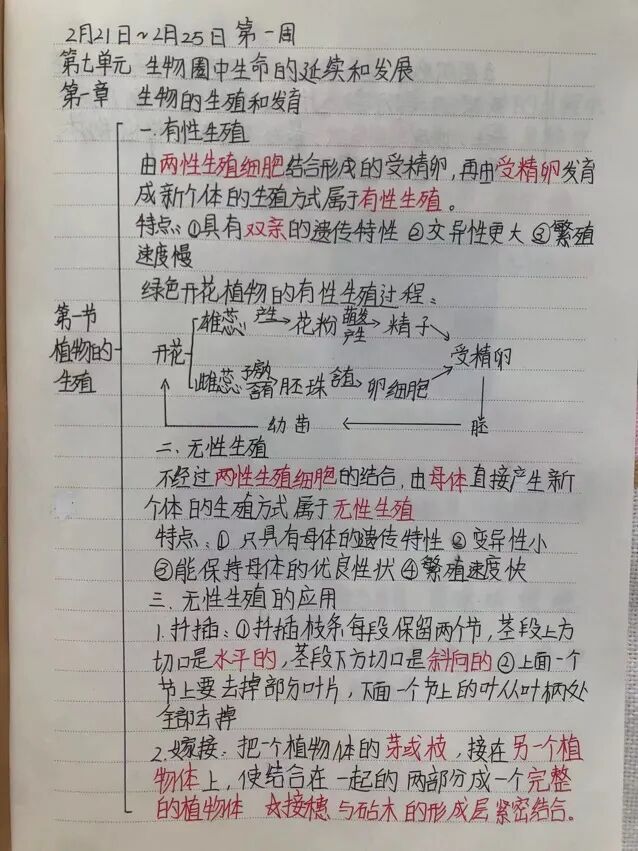 2月21日~2月25日 第一周
第七单元 生物圈中生命的延续和发展
第一章 生物的生殖和发育
一.有性生殖
由两性生殖细胞结合形成的受精卵,再由受精卵发育
成新个体的生殖方式属于有性生殖。
特点:①具有双亲的遗传特性 ②变异性更大 ③繁殖
速度慢
绿色开花植物的有性生殖过程:
第一节
植物的
生殖
开花
雄蕊 产生 花粉 萌发 产生 精子
雌蕊 子房内 含有 胚珠 含有 卵细胞
受精卵
幼苗
胚
二.无性生殖
不经过两性生殖细胞的结合,由母体直接产生新
个体的生殖方式属于无性生殖
特点:① 只具有母体的遗传特性 ② 变异性小
③能保持母体的优良性状 ④繁殖速度快
三.无性生殖的应用
1.扦插:①扦插枝条每段保留两个节,茎段上方
切口是水平的,茎段下方切口是斜向的 ②上面一个
节上要去掉部分叶片,下面一个节上的叶从叶柄处
全部去掉
2.嫁接:把一个植物体的芽或枝,接在另一个植
物体上,使结合在一起的两部分成一个完整
的植物体 ☆接穗与砧木的形成层紧密结合。